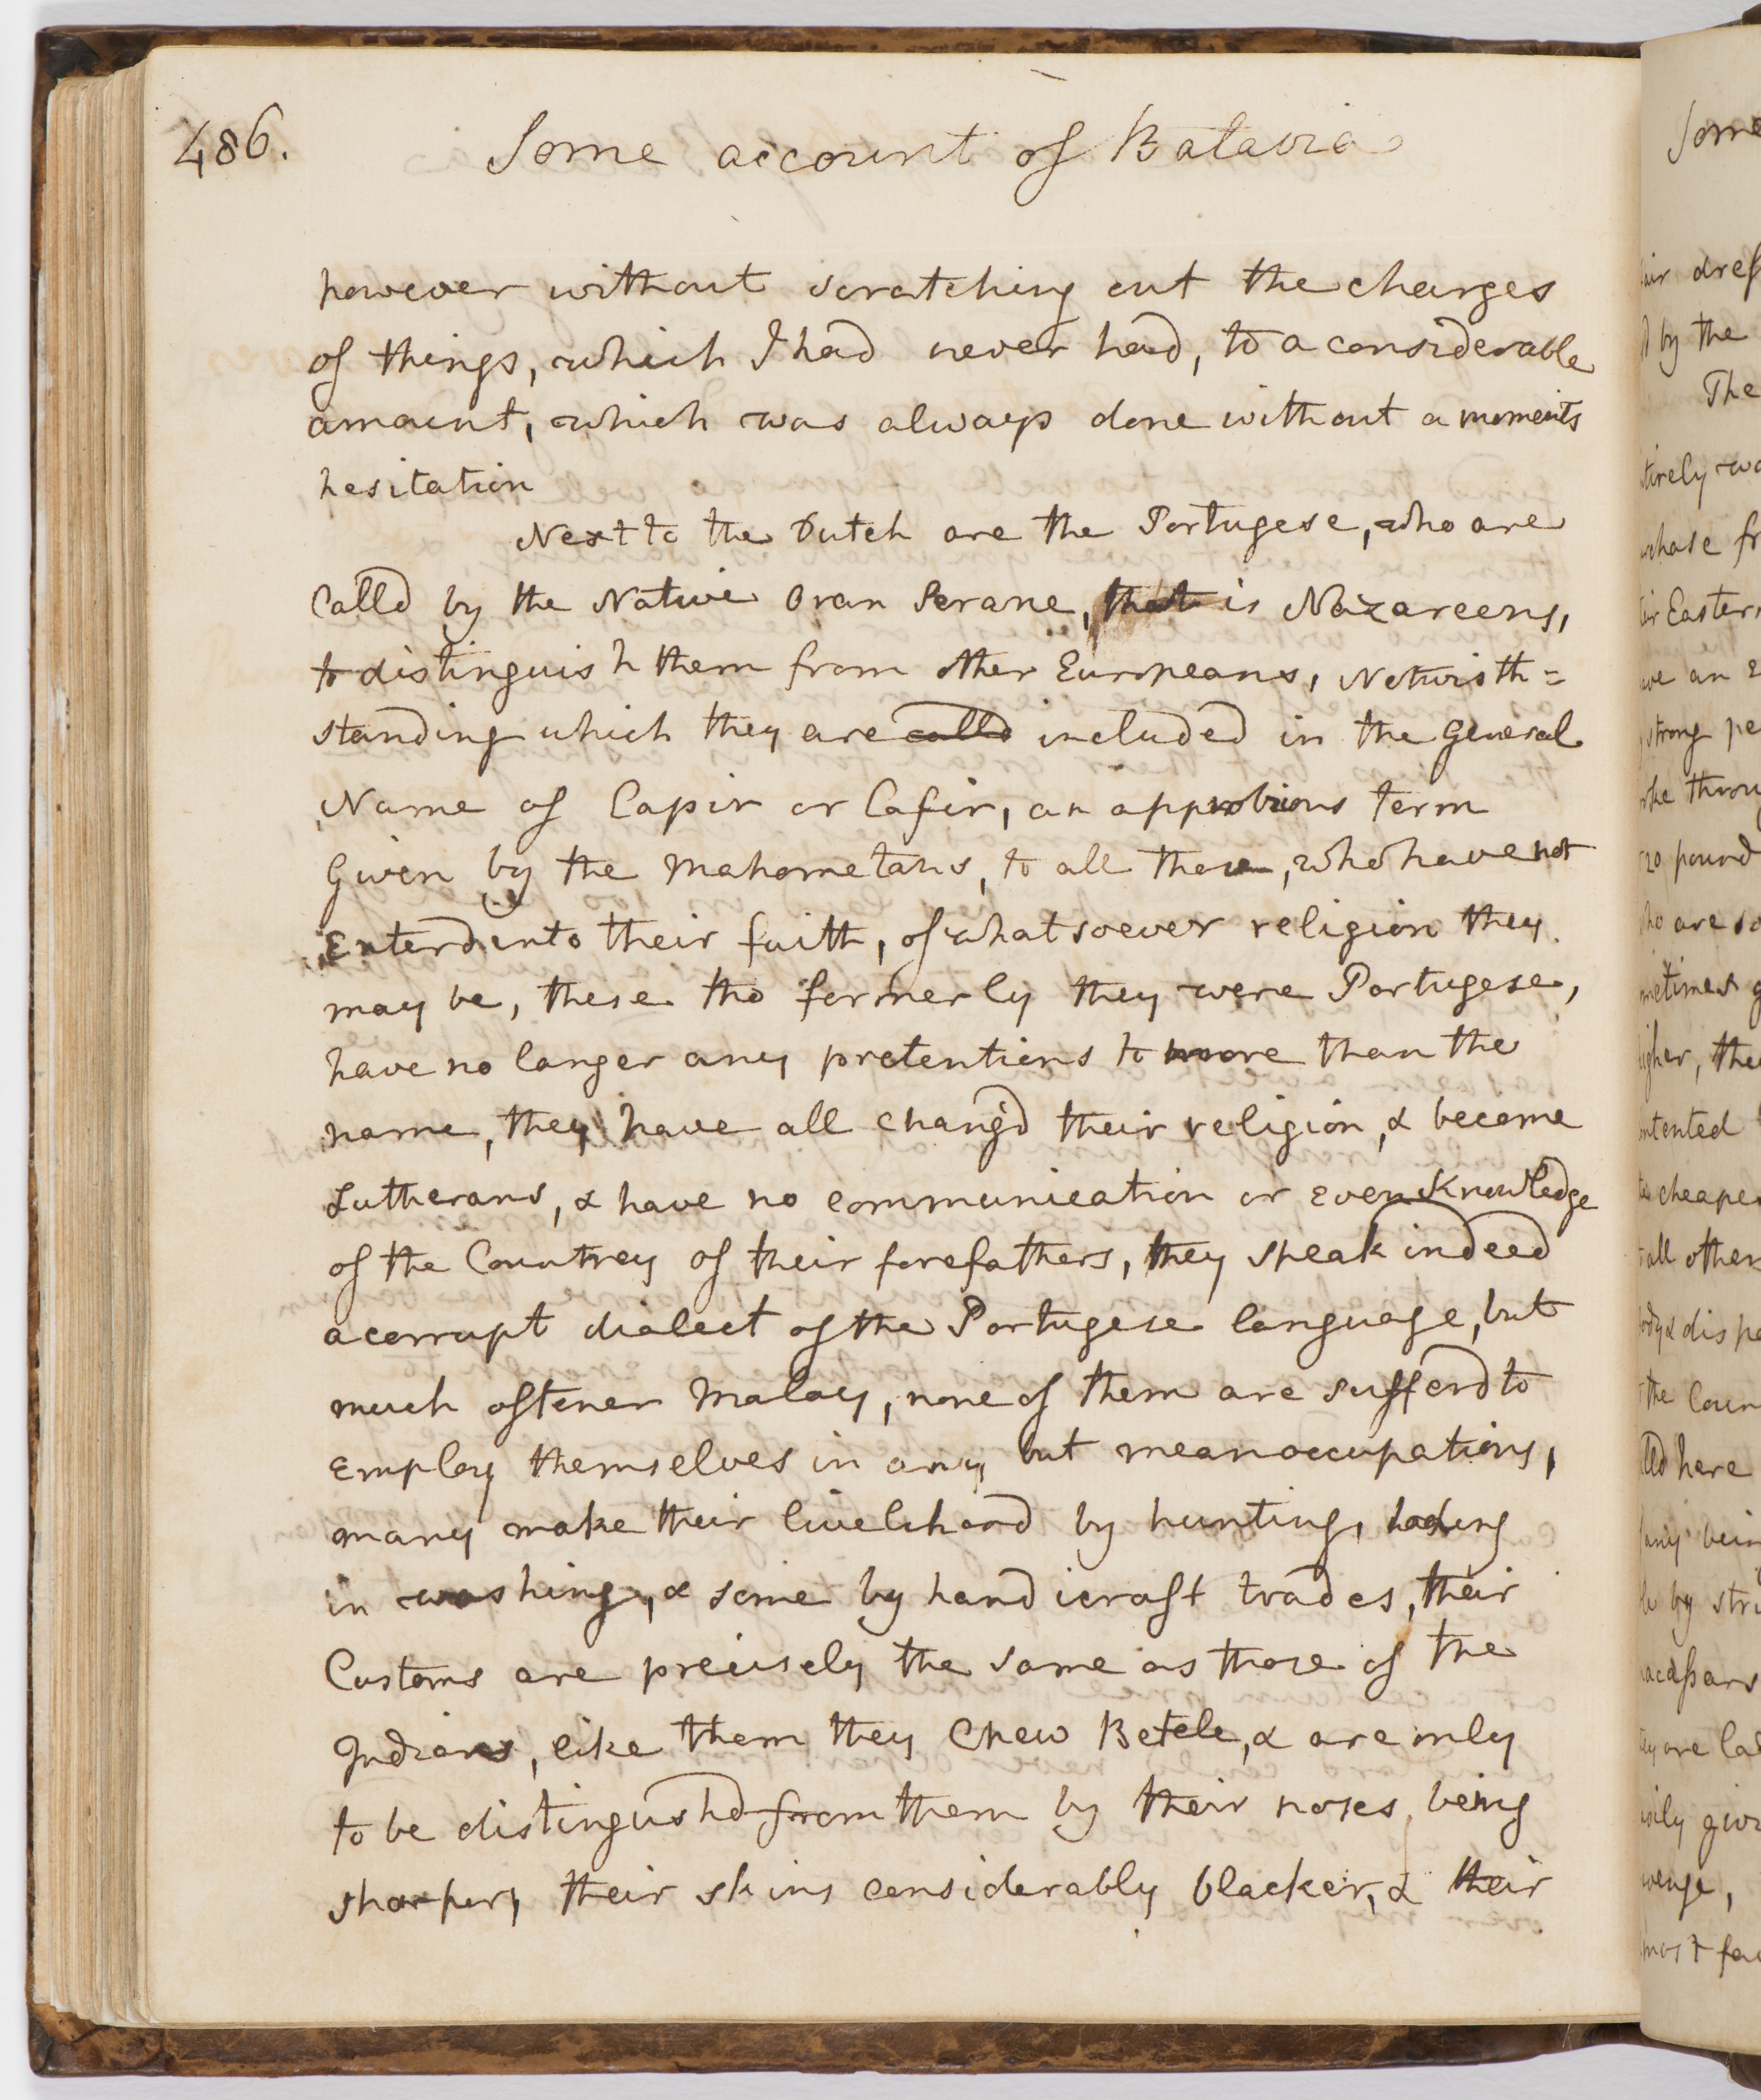 486.
Some account of Batavia
however without scratching out the charges
of things, which I had never had, to a considerable
amount, which was always done without a moments
hesitation
Next to the Dutch are the Portugese, who are
Calld by the Native Oran Serane, that is Nazareens,
to distinguish them from other Europeans, Notwisth=
standing which they are calld included in the General
Name of Capir or Cafir, an approbrious term
Given by the Mahometans, to all those, who have not
Enterd into their faith, of whatsoever religion they
may be, these tho formerly they were Portugese,
have no longer any pretentions to more than the
name, they have all chang'd their religion, & become
Lutherans, & have no communication or even Knowledge
of the Countrey of their forefathers, they speak indeed
a corrupt dialect of the Portugese language, but
much oftener Malay, none of them are sufferd to
Employ themselves in any but mean occupations,
many make their livelihood by hunting, taking
in washing, & some by handicraft trades, their
Customs are precisely the same as those of the
Indians, like them they Chew Betele, & are only
to be distingushd from them by their noses being
sharper, their skins considerably blacker, & their
Some
dress
by the
The
Easter
an
strong
pound
are
cheaper
all other
the
here
by
are